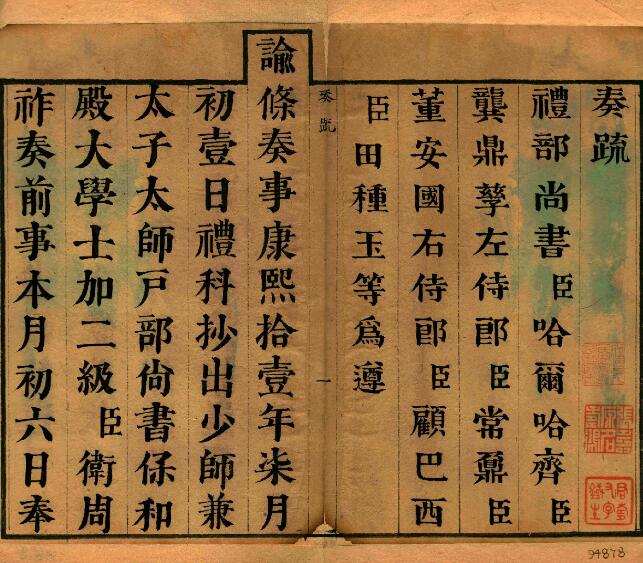 奏疏
禮部尚書臣哈爾哈齊臣
龔鼎孳左侍郎臣常鼐臣
董安國右侍郎臣顧巴西
臣田種玉等爲遵
奏疏
一
諭條奏事康熙拾壹年柒月
初壹日禮科抄出少師兼
太子太師戸部尚書保和
殿大學士加二級臣衛周
祚奏前事本月初六日奉
94878